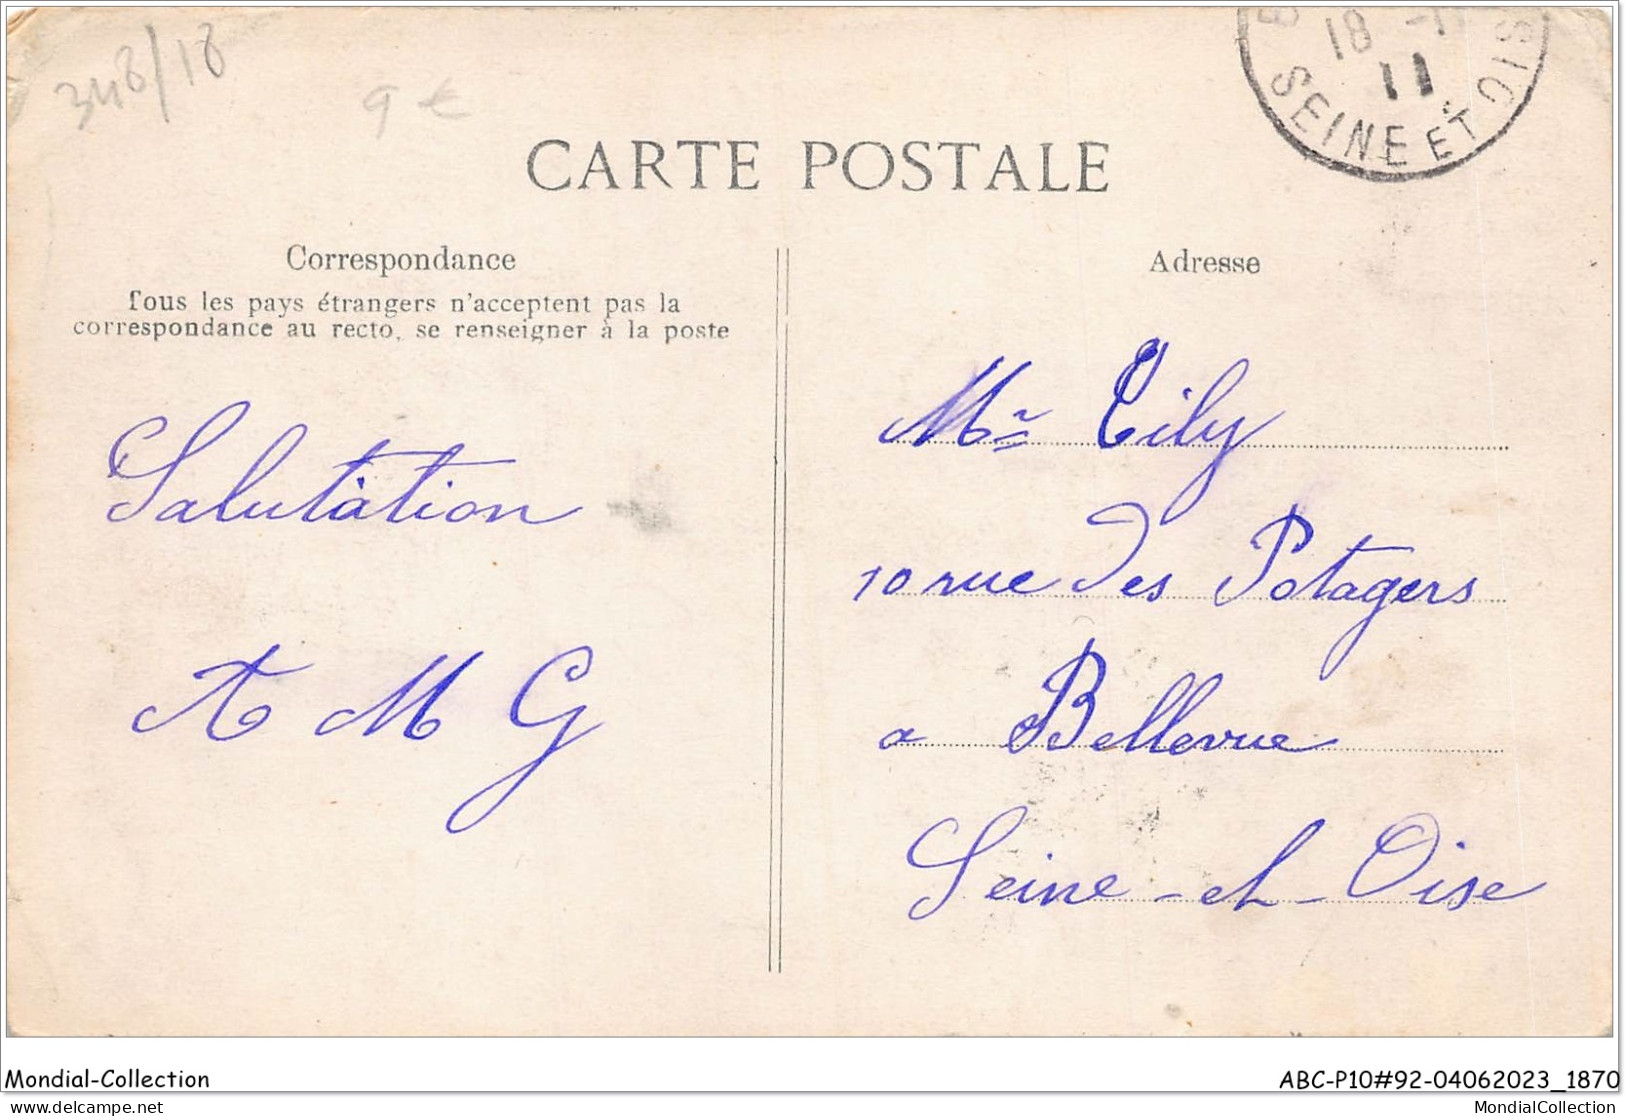 348/18
9 €
18 -1
11
SEINE ET OIS
CARTE POSTALE
Correspondance
Tous les pays étrangers n'acceptent pas la
correspondance au recto, se renseigner à la poste
Salutation
A M G
Adresse
Mr Tily
10 rue Des Potagers
a Bellevue
Seine-et-Oise
Mondial-Collection
ABC-P10#92-04062023_1870
delcampe.net
MondialCollection